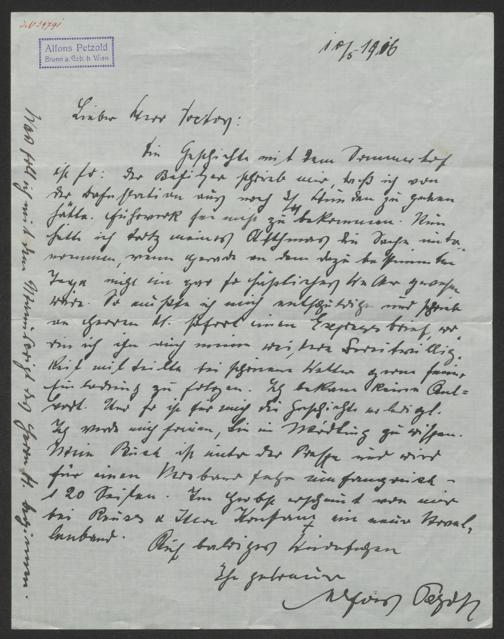 I.N. 29791
Alfons Petzold
Brunn a. Geb. b. Wien
18/5 1916
Lieber Herr Doctor:
Die Geschichte mit dem Sommerhof
ist so: der Besitzer schrieb mir, daß ich von
der Bahnstation aus noch Stunden zu gehen
hätte. Fuhrwerk sei nicht zu bekommen. Nun
hätte ich trotz meines Asthmas die Sache unter-
nommen, wenn gerade an dem dazu bestimmten
Tage nicht ein gar so häßliches Wetter gewesen
wäre. So mußte ich mich entschuldigen und schrieb
an Herrn H. sofort einen Expressbrief, wo-
rin ich ihm auch meine weitere Bereitwillig-
keit mitteilte bei schönem Wetter gerne seiner
Einladung zu folgen. Ich bekam keine Ant-
wort. Und so ist für mich die Geschichte erledigt.
Ich werde mich freuen, Sie in Mödling zu wissen.
Mein Buch ist unter der Presse und wird
für einen Versband sehr umfangreich -
120 Seiten. Im Herbst erscheint von mir
bei Reuss & Itta Konstanz ein neuer Novel-
lenband.
Auf baldiges Wiedersehen
Ihr getreuer
Alfons Petzold
Was soll ich mit dem Manuskript des Herrn H. beginnen.